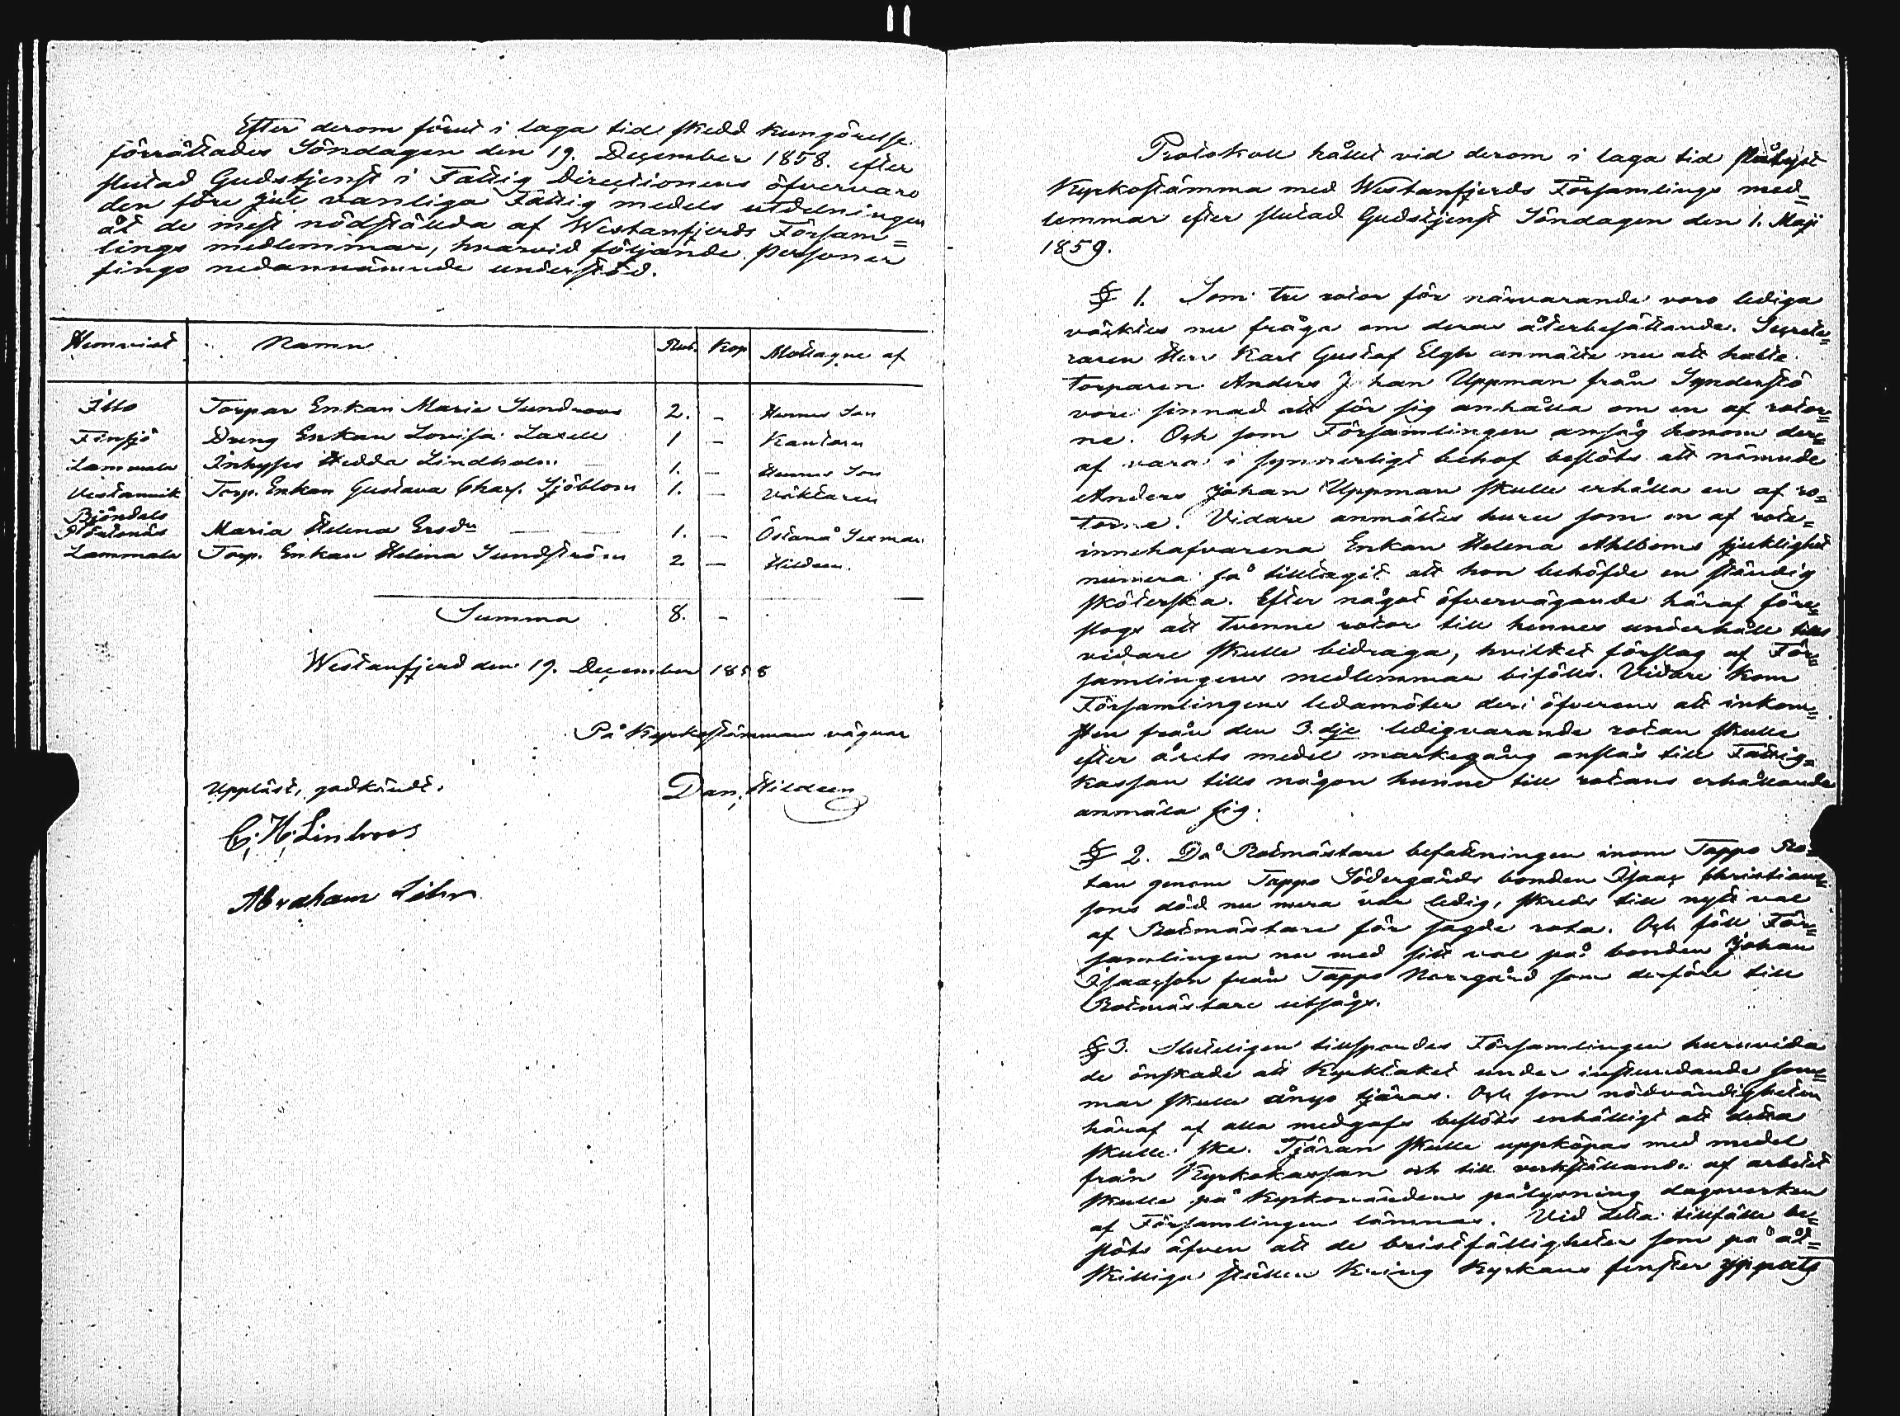 Efter derom förut i laga tid skedd kungörelse
förrättades Söndagen den 19. December 1858. efter
slutad Gudstjenst i Fattig Directionens öfvervaro
den före jul vanliga Fattig medels utdelningen
åt de mest nödstälda af Westanfjerds Försam=
lings medlemmar, hvarvid följande personer
fingo nedannämnde understöd.
Hemvist Namn Rub. Kop Mottagne af
Illo Torpar Enkan Maria Sundroos 2. – Hennes Son
Finsjö Dreng Enkan Lovisa Laxell 1 – Kantorn
Lammala Inhyses Hedda Lindholm 1. – Hennes Son
Vestanvik Torp. Enkan Gustava Charl. Sjöblom 1. – Väktaren
Björkdals
Maria Helena Ersdr 1. – Östanå Sexman
Lammala Torp. Enkan Helena Sundström 2 – Hildeen.
Summa 8. –
Westanfjerd den 19. December 1858
På Kyrkostämmans vägnar
Dan. Hildeen
Uppläst, godkändt.
C. H. Lindroos
Abraham
Protokoll hållet vid derom i laga tid pålyst
Kyrkostämma med Westanfjerds Församlings med=
lemmar efter slutad Gudstjenst Söndagen den 1. Maji
1859.
§ 1. Som tre rotor för närvarande voro lediga
väcktes nu fråga om deras återbesättande. Secrete=
raren Herr Karl Gustaf Elgh anmälte nu att halte
Torparen Anders Johan Uppman från Synderstö
vore sinnad att för sig anhålla om en af rotor=
ne. Och som Församlingen ansåg honom der=
af vara i synnerligt behof beslöts att nämnde
Anders Johan Uppman skulle erhålla en af ro=
torne. Vidare anmältes huru som en af rote=
innehafvarena Enkan Helena Ahlboms sjuklighet
numera så tilltagit att hon behöfde en ständig
sköterska. Efter något öfvervägande häraf före=
slogs att tvenne rotor till hennes underhåll tills
vidare skulle bidraga, hvilket förslag af För=
samlingens medlemmar bifölls. Vidare kom
Församlingens ledamöter deri öfverens att inkom=
sten från den 3.dje ledigvarande rotan skulle
efter årets medel markegång anslås till Fattig=
kassan tills någon hunne till rotans erhållande
anmäla sig.
§ 2. Då Rotmästare befattningen inom Tappo Ro=
tan genom Tappo Södergårds bonden Isaac Christians=
sons död nu mera var ledig, skreds till nytt val
af Rotmästare för sagde rota. Och föll För=
samlingen nu med sitt val på bonden Johan
Isaacsson från Tappo Norrgård som derföre till
Rotmästare utsågs.
§ 3. Slutligen tillspordes Församlingen huruvida
de önskade att Kyrktaket under instundande som=
mar skulle ånyo tjäras. Och som nödvändigheten
häraf af alla medgafs beslöts enhälligt att detta
skulle ske. Tjäran skulle uppköpas med medel
från Kyrkokassan och till verkställande af arbetet
skulle på Kyrkovärdens pålysning dagsverken
af Församlingen lämnas. Vid detta tillfälle be=
slöts äfven att de bristfälligheter som på åt=
skilliga ställen kring Kyrkans fenster yppats